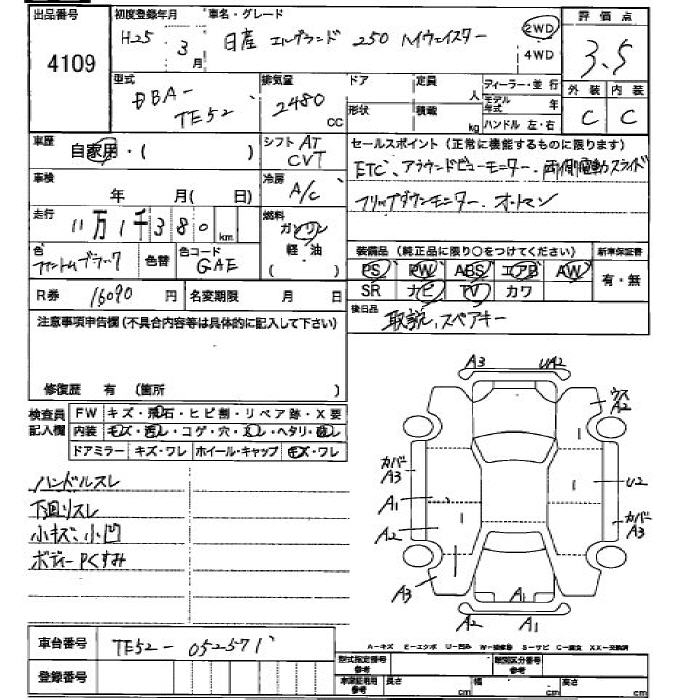 出品番号 初度登録年月 車名・グレード 評価点
4109 H25 3月 日産 エルグランド 250 ハイウェイスター 2WD 4WD 3.5
型式 排気量 ドア 定員 人 フィーラー・並行 外装 内装
DBA-TE52 2480cc 形状 積載 kg モデル年式 年 ハンドル 左・右 C C
車歴 自家用・( ) シフト AT CVT セールスポイント(正常に機能するものに限ります)
車検 年 月( 日) 冷房 A/C ETC、アラウンドビューモニター、両側電動スライド
走行 11万1千380km 燃料 ガソリン 軽・油 ( ) フリップダウンモニター、オットマン
色 ファントムブラック 色替 色コード GAE 装備品(純正品に限り○をつけてください) 新車保証書
PS PW ABS エアB AW 有・無
R券 16090円 名変期限 月 日 SR ナビ TV カワ
注意事項申告欄(不具合内容等は具体的に記入して下さい) 後日品 取説、スペアキー
修復歴 有 (箇所 )
検査員記入欄 FW キズ・飛石・ヒビ割・リペア跡・X要
内装 キズ・汚レ・コゲ・穴・スレ・ヘタリ・破レ
ドアミラー キズ・ワレ ホイール・キャップ キズ・ワレ
ハンドルスレ
下回りスレ
小キズ、小凹
ボディーPくすみ
A3 UA2
ウスA2
カバーA3
A1 U2
A2 カバーA3
A3
A2 A1
車台番号 TE52-052571
登録番号
A-キズ E-エクボ U-凹み W-補修跡 S-サビ C-腐食 XX-交換済
型式指定番号 参考 類別区分番号 参考
車庫証明用 参考 長さ cm 幅 cm 高さ cm